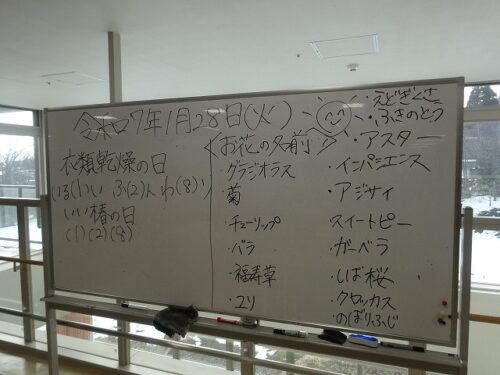 令和7年1月28日(火)
衣類乾燥の日
いる(1)い ふ(2)ん わ(8)り
いい椿の日
(1)(2)(8)
<お花の名前>
・グラジオラス
・菊
・チューリップ
・バラ
・福寿草
・ユリ
・えどぎくさ
・ふきのとう
・アスター
・インパシエンス
・アジサイ
スイートピー
・ガーベラ
・しば桜
・クロッカス
・のぼりふじ